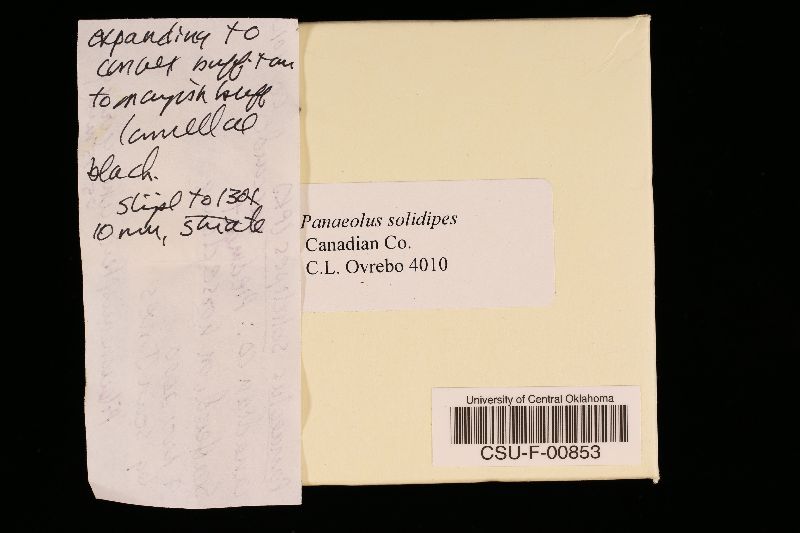 expanding to
convex buff-tan
to grayish buff
lamellae
black.
stipe to 130x
10 mm, striate
Panaeolus solidipes
Canadian Co.
C.L. Ovrebo 4010
University of Central Oklahoma
CSU-F-00853